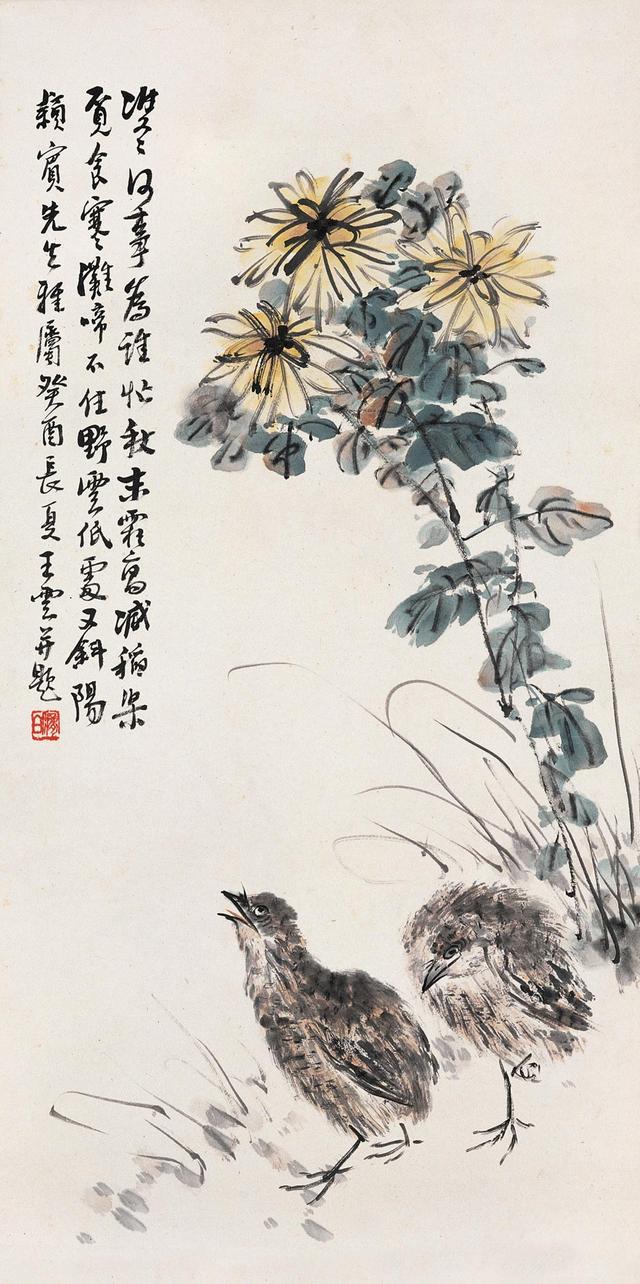 何事為誰忙秋末霜高減稻粱
覓食寒灘啼不住野雲低處又斜陽
穎賓先生雅屬癸酉長夏王雲并題
夢白